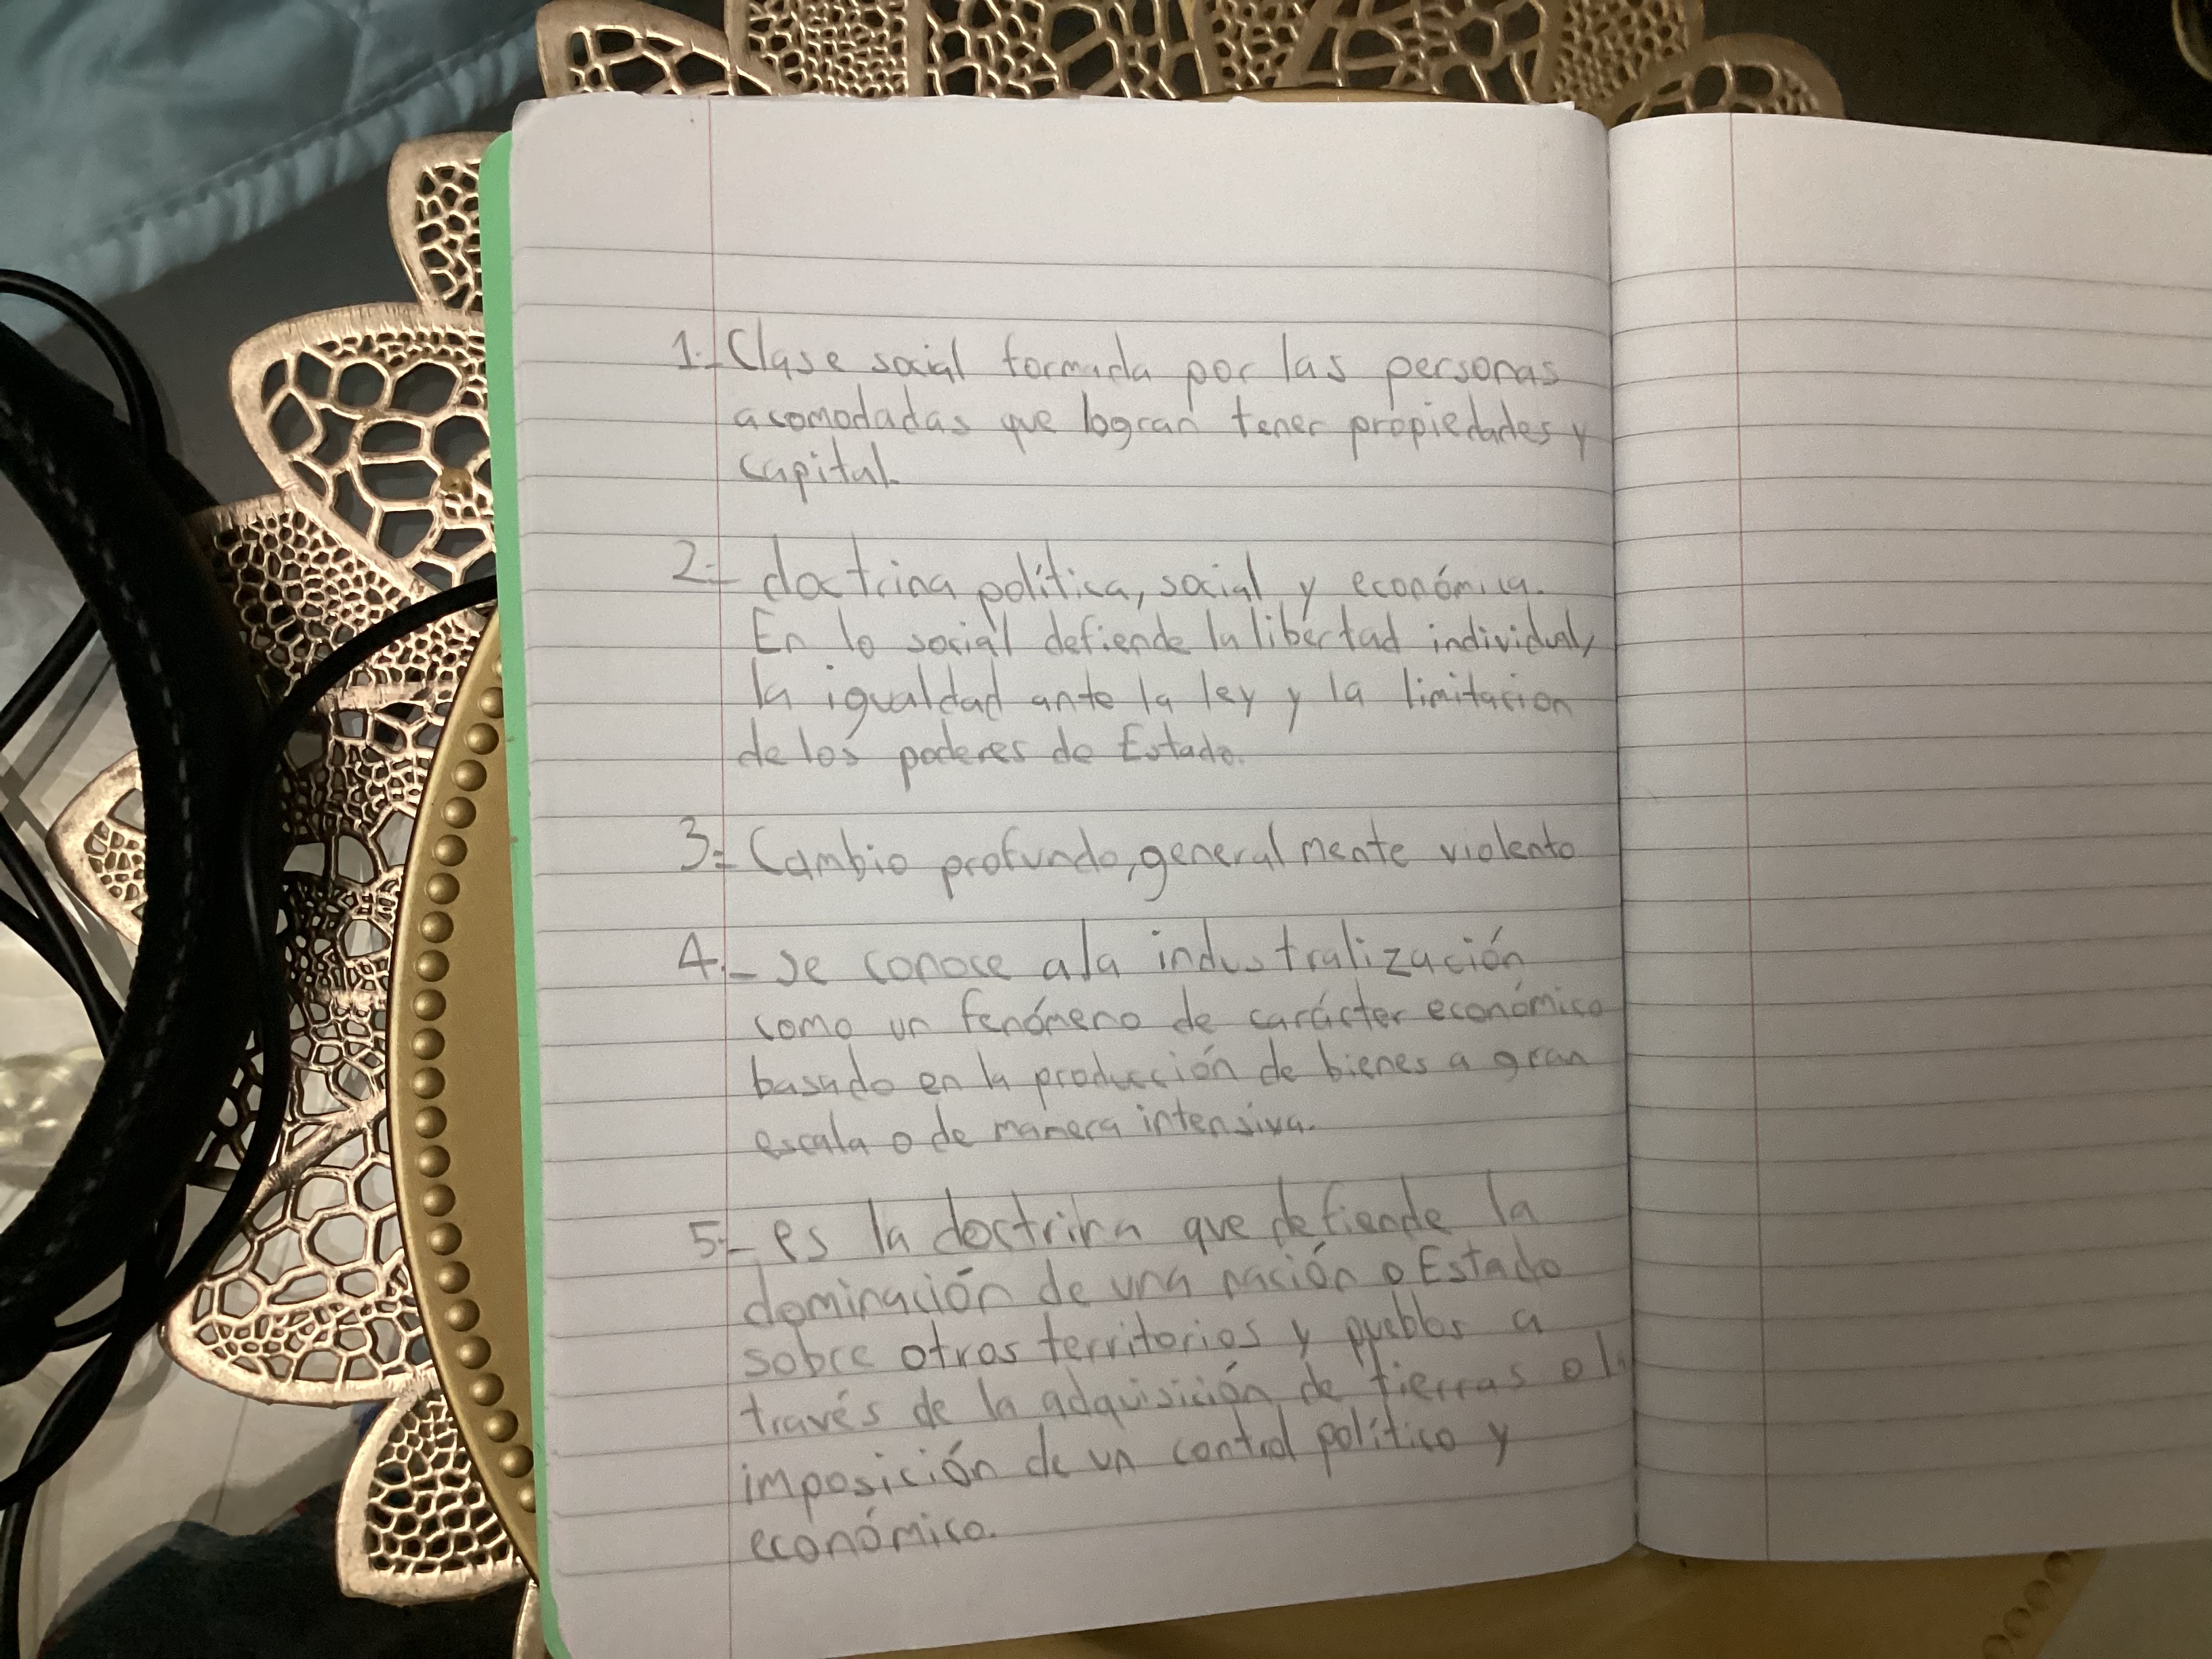 1.- Clase social formada por las personas
acomodadas que logran tener propiedades y
capital.
2.- doctrina política, social y económica.
En lo social defiende la libertad individual,
la igualdad ante la ley y la limitacion
de los poderes de Estado.
3.- Cambio profundo, generalmente violento
4.- se conoce a la industralización
como un fenómeno de carácter económico
basado en la producción de bienes a gran
escala o de manera intensiva.
5.- es la doctrina que defiende la
dominación de una nación o Estado
sobre otros territorios y pueblos a
través de la adquisición de tierras o la
imposición de un control político y
económico.